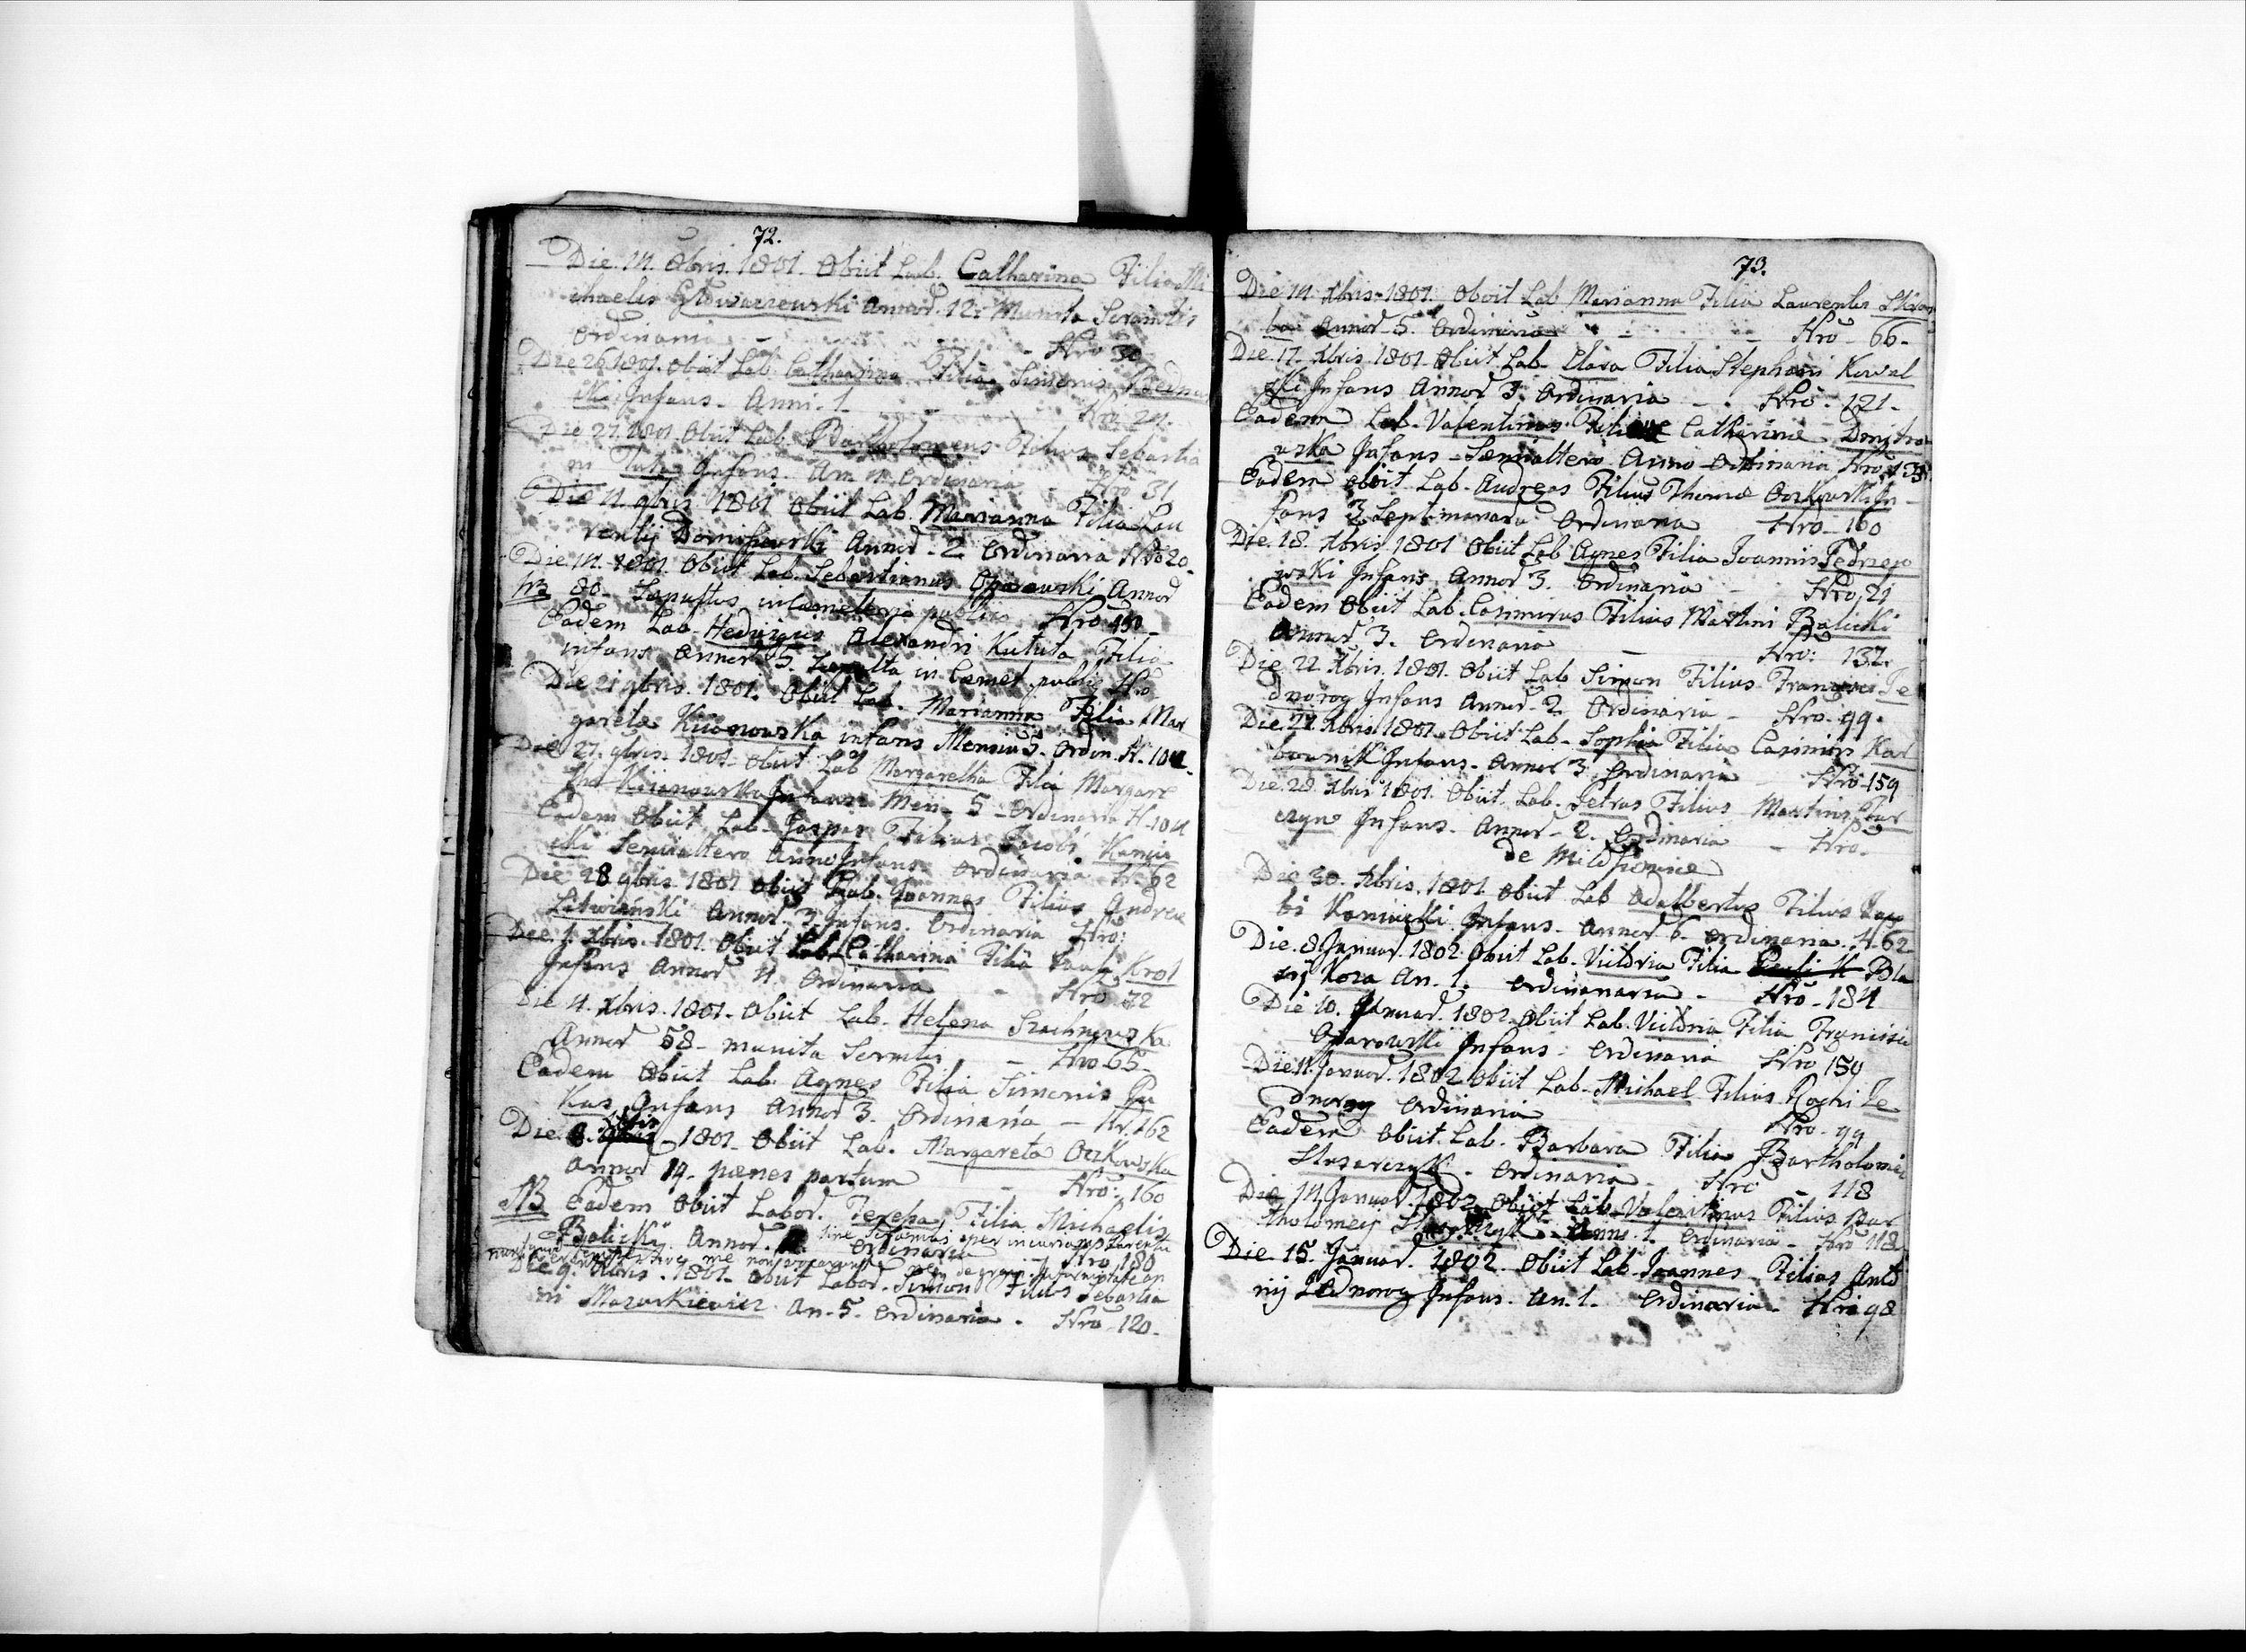 72.
Die. 14. 8bris. 1801. Obiit Lab. Catharina Filia Mi
chaelis Annor. 12. Munita Scramtis
Ordinaria - Nro 30
Die 26 1801. obiit Lab. Catharina Filia Simonis Bedna
ski Infans - Anni - 1 - Nro 29.
Die 27. 1801. Obiit Lab. Bartholomeus Filius Sebastia
ni Infans. An Ordinaria Nro 31
Die 11. 9bris 1801 Obiit Lab. Marianna Filia Lau
rentij Annor - 2 Ordinaria Nro 20.
Die. 14. 1801. Obiit Lab. Sebastianus Oparowski Annor
NB 80. Sepultus in Cemeterio publico Nro 150 -
Eadem Lab. Hedvigis Alexandri Kututa Filia
infans Annor 5. Sepulta in Cemet. public Nro
Die 21 9bris. 1801. Obiit Lab. Marianna Filia Mar
garetae Kiianowska infans Mensium 5. Ordin. N. 104 -
Die 27. 9bris. 1801. Obiit Lab Margaretha Filia Margare
tha Kiianowska Infans Men - 5 - Ordinaria N - 104
Eadem Obiit Lab - Gaspar Filius Jacobi Kamin
ski Semialtero Anno Infans Ordinaria N. 62
Die 28 9bris. 1801 Obiit Lab. Joannes Filius Andreae
Litwiński Annor. 3 Infans. Ordinaria Nro:
Die. 1. Xbris. 1801. Obiit Lab. Catharina Filia Pauli Krol
Infans Annor 4. Ordinaria - Nro 72
Die 4. Xbris. 1801. Obiit Lab. Helena Szachnowska
Annor 58 - munita Scrmtis - Nro 65 -
Eadem Obiit Lab. Agnes Filia Simonis Pu
kas Infans Annor 3. Ordinaria - Nr. 162
Die 8. Xbris 1801. Obiit Lab. Margareta Oczkowska
Annor 19. paenes partum - Nro: 160
NB Eadem Obiit Labor. Teresa Filia Michaelis
Balicki Annor. sine Scramtis per incuriam Parentu
Ordinaria Nro 180
Die 9. Xbris. 1801. Obiit Labor. Simon Filius Sebastia
ni Mazurkiewicz An. 5. Ordinaria. Nro 120.
73.
Die 14. Xbris. 1801. Obiit Lab Marianna Filia Laurentii Skrom
ba Annor 5. Ordinaria - - Nro - 66 -
Die. 17. Xbris. 1801. Obiit Lab. Clara Filia Stephani Kowal
ski Infans Annor 3. Ordinaria - Nro. 121 -
Eadem Lab. Valentinus Filius Catharinae Dmitro
wska Infans - Semialtero Anno - Ordinaria Nro 13
Eadem obiit Lab. Andreas Filius Thomae Oczkowski In -
fans 3 Septimanaru Ordinaria Nro - 160
Die. 18. Xbris. 1801 Obiit Lab Agnes Filia Joannis
wski Infans Annor 3. Ordinaria - Nro 21
Eadem Obiit Lab. Casimirus Filius Martini Balicki
Annor 3. Ordinaria - Nro: 132.
Die 22 Xbris. 1801. Obiit Lab Simon Filius Francisci Je
dnorog Infans Annor - 2. Ordinaria - Nro. 99.
Die. 27 Xbris. 1801. Obiit Lab - Sophia Filia Casimiri Kar
bownik Infans - Annor 3 Ordinaria - Nro - 159
Die. 28. Xbris 1801. Obiit Lab. Petrus Filius Martini
czyn Infans. Annor - 2. Ordinaria - Nro.
de
Die 30. Xbris. 1801. Obiit Lab Adalbertus Filius Jaco
bi Kaminski Infans - Annor 6 - Ordinaria. N. 62
Die. 8 Januar. 1802. Obiit Lab. Victoria Filia Bla
sij Koza An. 1. Ordinanaria - Nro - 184
Die 10. Januar. 1802. Obiit Lab. Victoria Filia Francisci
Oparowski Infans - Ordinaria Nro 150
Die 11. Januar. 1802 Obiit Lab. Michael Filius Rochi Je
dnorog Ordinaria Nro. 99
Eadem Obiit Lab. Barbara Filia Bartholomei
Slusarczyk - Ordinaria - Nro - 118
Die 14. Januar. 1802. Obiit Lab. Valentinus Filius Bar
tholomeij Slusarczyk Anni 1. Ordinaria - Nro 118
Die. 15. Januar. 1802. Obiit Lab. Joannes - Filius Anto
nij Jednorog Infans. An. 1. Ordinaria - Nro 98